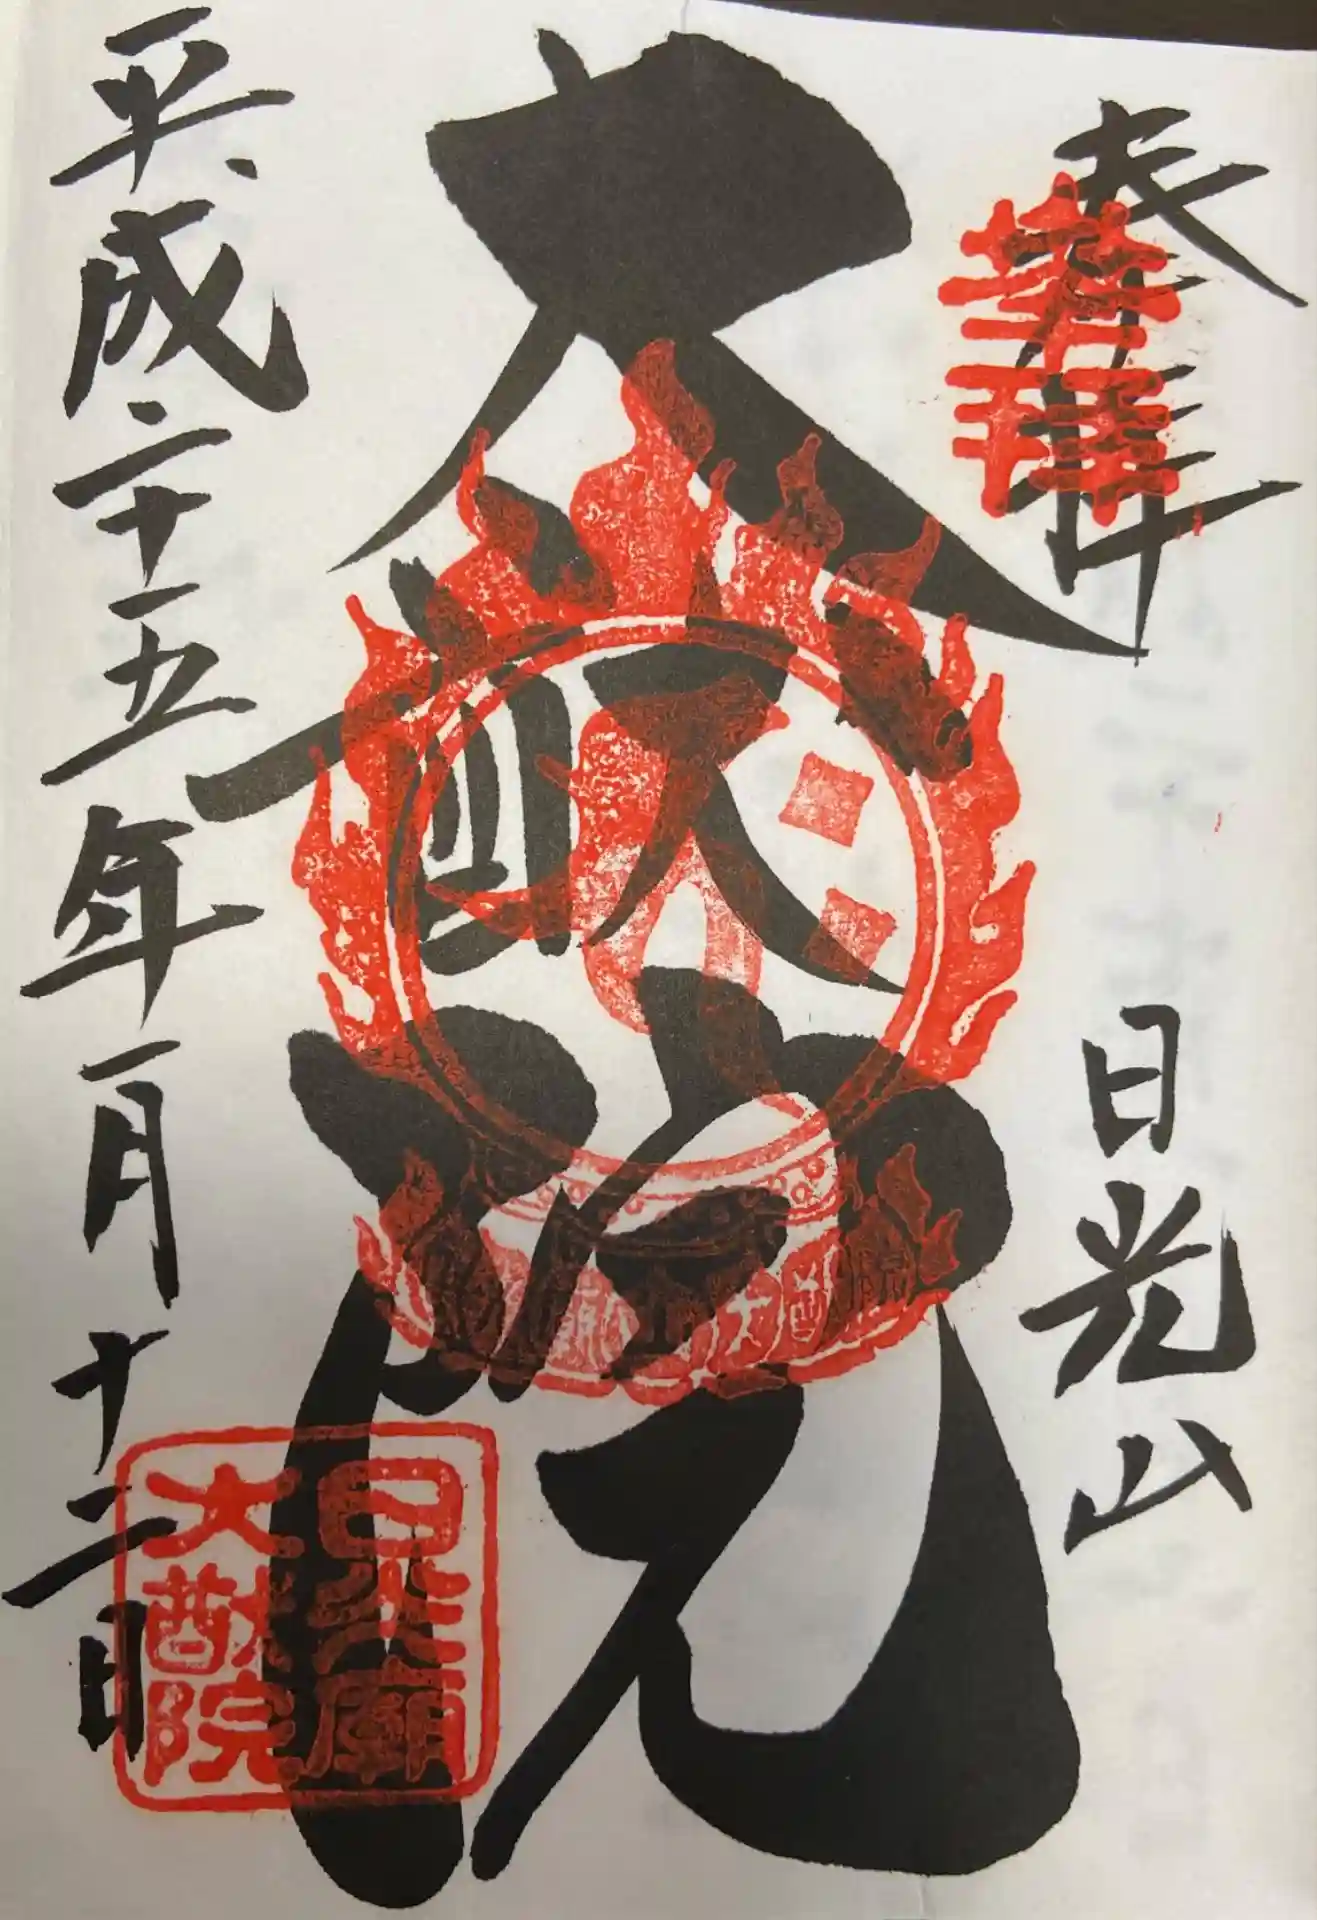 奉拝
日光山
大猷院
平成二十五年一月十二日
日光廟
大猷院